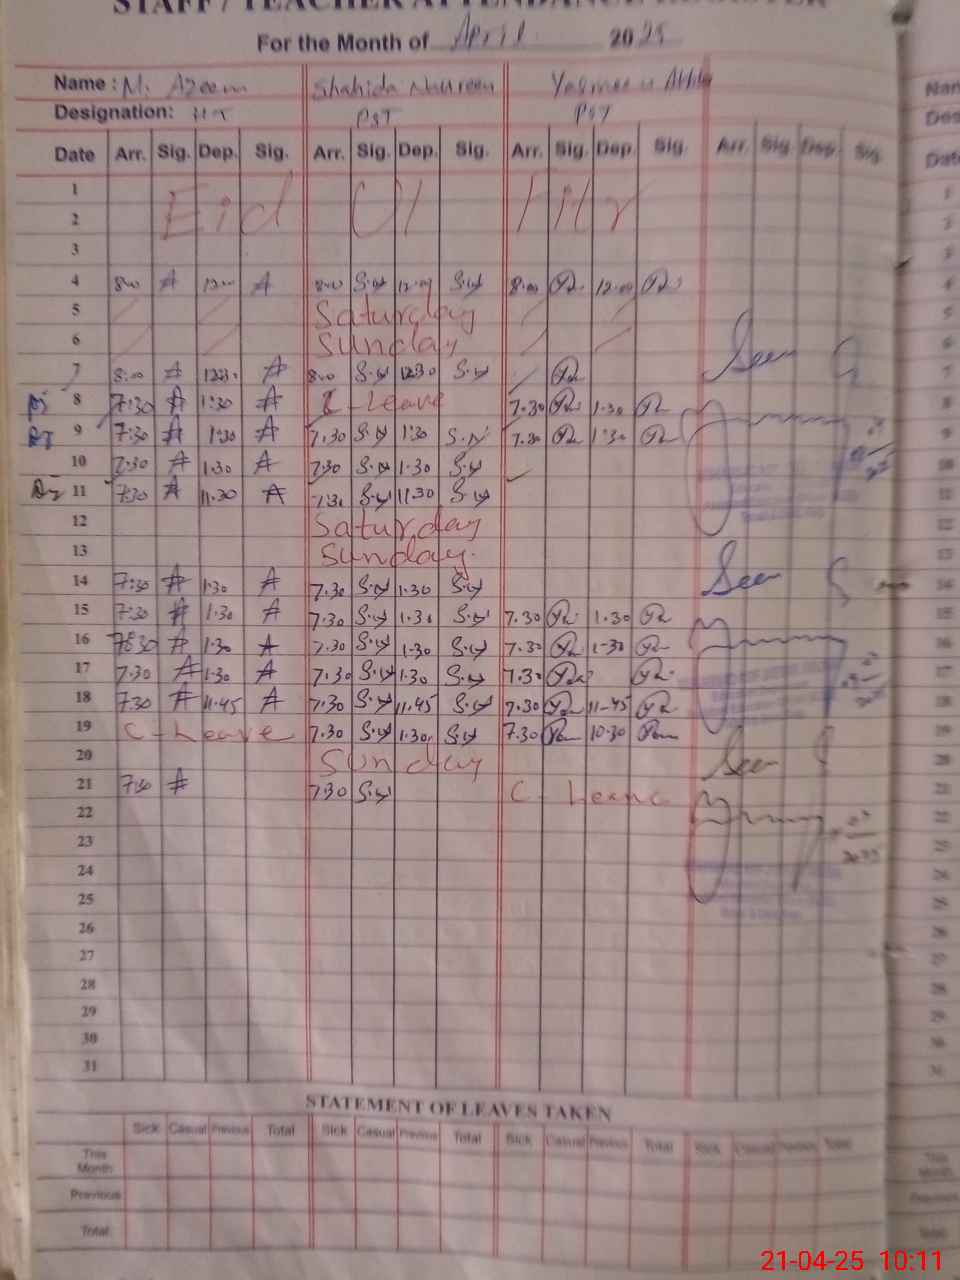 STAFF / TEACHER ATTENDANCE REGISTER
For the Month of April 2025
Name : M. Azeem Shahida Naureen Yasmeen
Designation: HT PST PST
Date Arr. Sig. Dep. Sig. Arr. Sig. Dep. Sig. Arr. Sig. Dep. Sig. Arr. Sig. Dep. Sig.
1
2 Eid Ul Fitr
3
4 8:00 A 12:00 A 8:00 S.N 12:00 S.N 8:00 12:00
5 Saturday
6 Sunday
Seen
7 8:00 A 12:30 A 8:00 S.N 12:30 S.N
8 7:30 A 1:30 A C-Leave 7.30 1.30
9 7:30 A 1:30 A 7.30 S.N 1:30 S.N 7.30 1:30
10 7:30 A 1.30 A 7:30 S.N 1.30 S.N
11 7:30 A 11.30 A 7:30 S.N 11.30 S.N
12 Saturday
13 Sunday.
14 7:30 A 1:30 A 7.30 S.N 1.30 S.N Seen
15 7:30 A 1.30 A 7.30 S.N 1.30 S.N 7.30 1.30
16 7:30 A 1.30 A 7.30 S.N 1.30 S.N 7.30 1-30
17 7.30 A 1.30 A 7.30 S.N 1.30 S.N 7.30
18 7.30 A 11.45 A 7.30 S.N 11.45 S.N 7.30 11-45
19 C-Leave 7.30 S.N 1.30 S.N 7.30 10:30
20 Sunday Seen
21 7:30 A 7:30 S.N C-Leave
22
23
24
25
26
27
28
29
30
31
STATEMENT OF LEAVES TAKEN
Sick Casual Previous Total Sick Casual Previous Total Sick Casual Previous Total Sick Casual Previous Total
This Month
Previous
Total
21-04-25 10:11